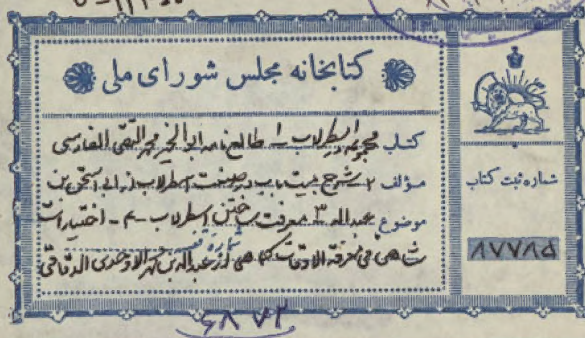 کتابخانه مجلس شورای ملی
کتاب مجموعه اسطرلاب ۱ طالع نامه ابوالخیر محمد التقی الفارسی
مؤلف ۲ شرح بیست باب در صنعت اسطرلاب از ابی اسحق بن
موضوع عبدالله ۳ معرفت ساختن اسطرلاب ۴ - اختیارات
شاهی فی معرفة الاوقات کماهی از عبدالله بن محمد الاوحدی الدقاقی
شماره ثبت کتاب
۸۷۷۸۵
شماره قفسه
۶۸۷۲